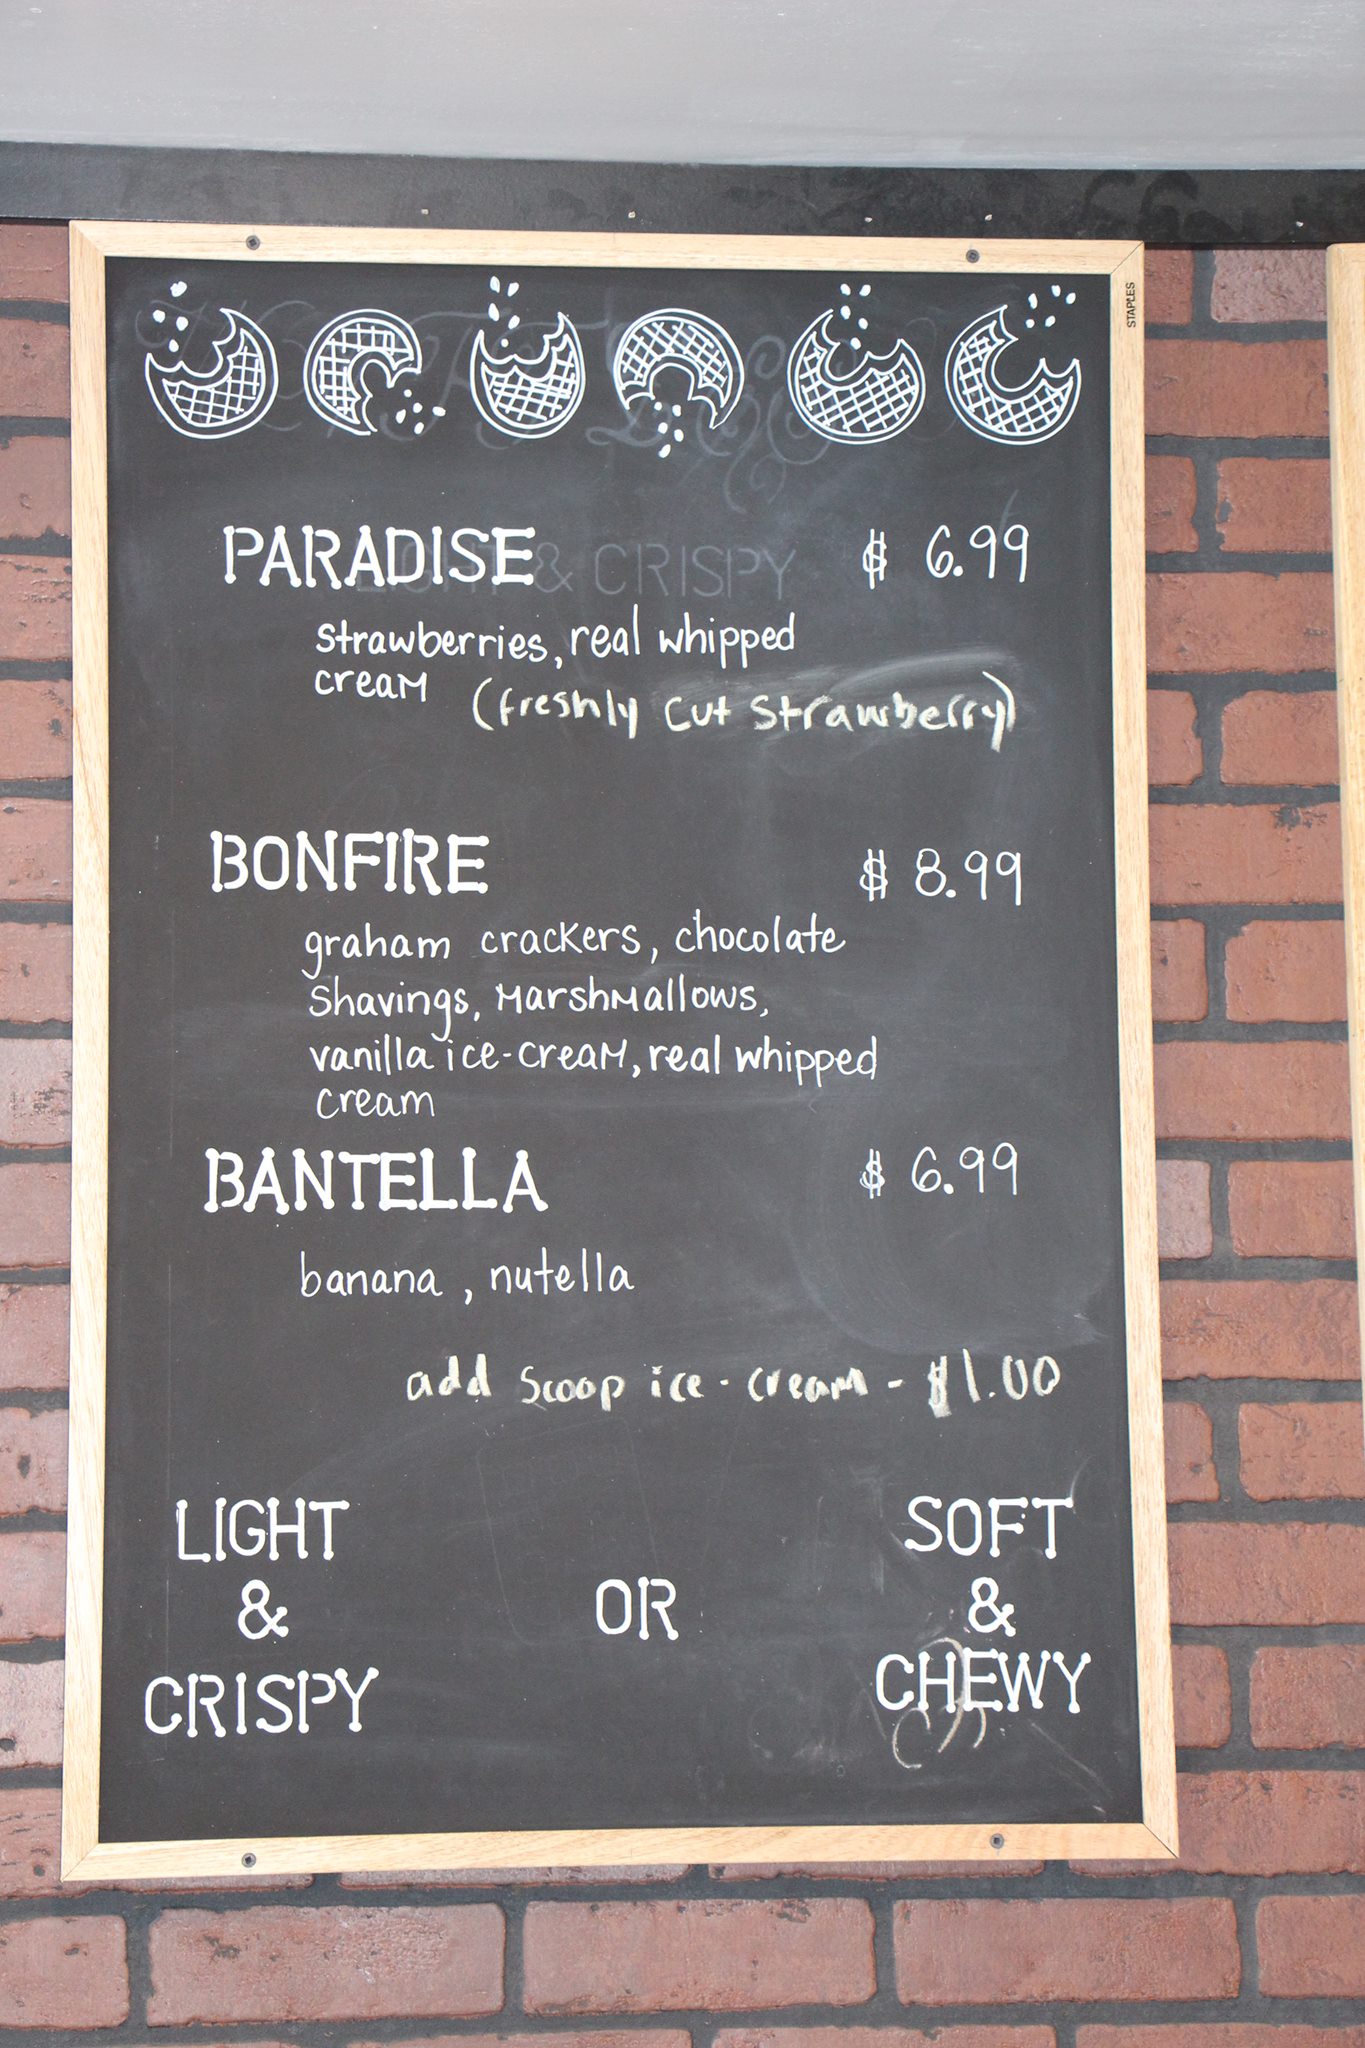 STAPLES
PARADISE $ 6.99
LIGHT & CRISPY
strawberries, real whipped
cream (freshly cut strawberry)
BONFIRE $ 8.99
graham crackers, chocolate
shavings, marshmallows,
vanilla ice-cream, real whipped
cream
BANTELLA $ 6.99
banana, nutella
add scoop ice-cream - $1.00
LIGHT SOFT
& OR &
CRISPY CHEWY